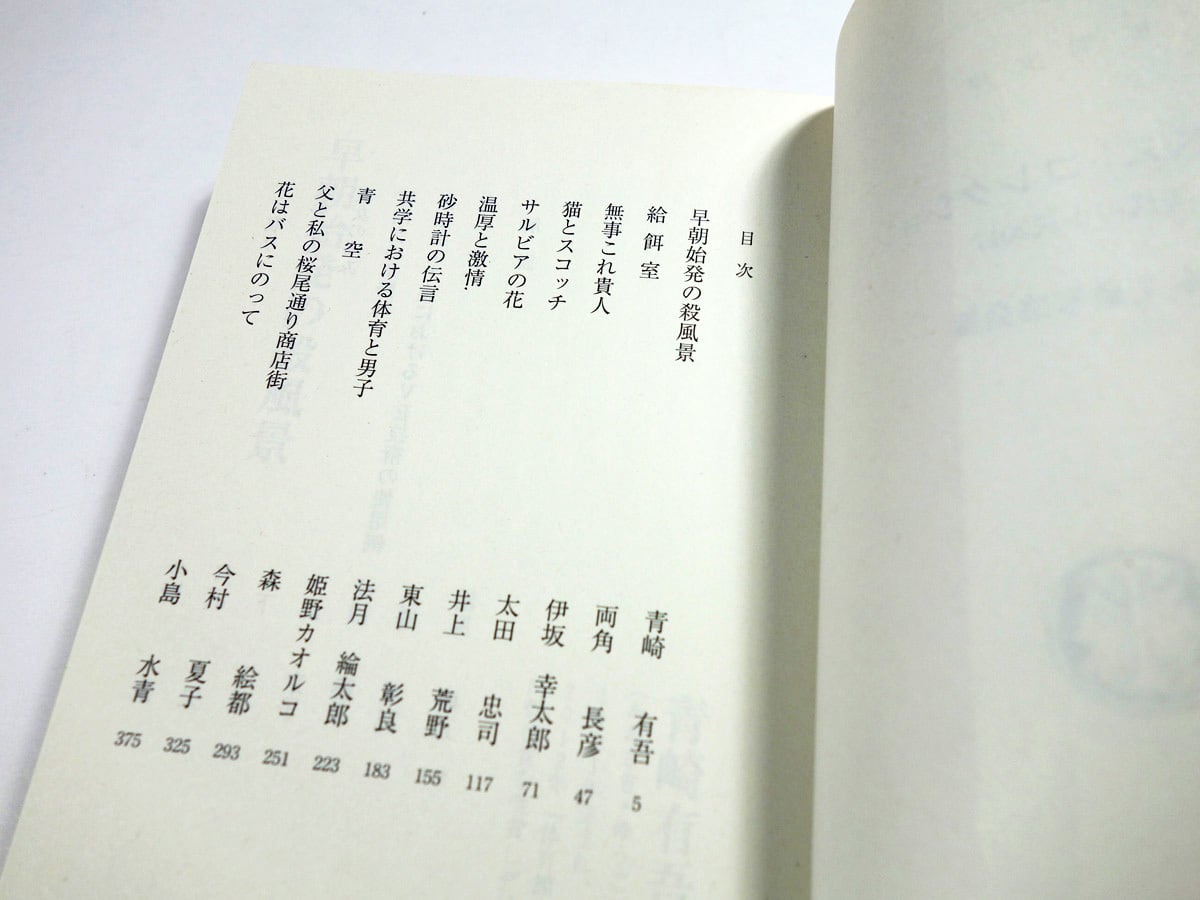 目次
早朝始発の殺風景 青崎 有吾 5
給餌室 両角 長彦 47
無事これ貴人 伊坂 幸太郎 71
猫とスコッチ 太田 忠司 117
サルビアの花 井上 荒野 155
温厚と激情 東山 彰良 183
砂時計の伝言 法月 綸太郎 223
共学における体育と男子 姫野カオルコ 251
青空 森 絵都 293
父と私の桜尾通り商店街 今村 夏子 325
花はバスにのって 小島 水青 375